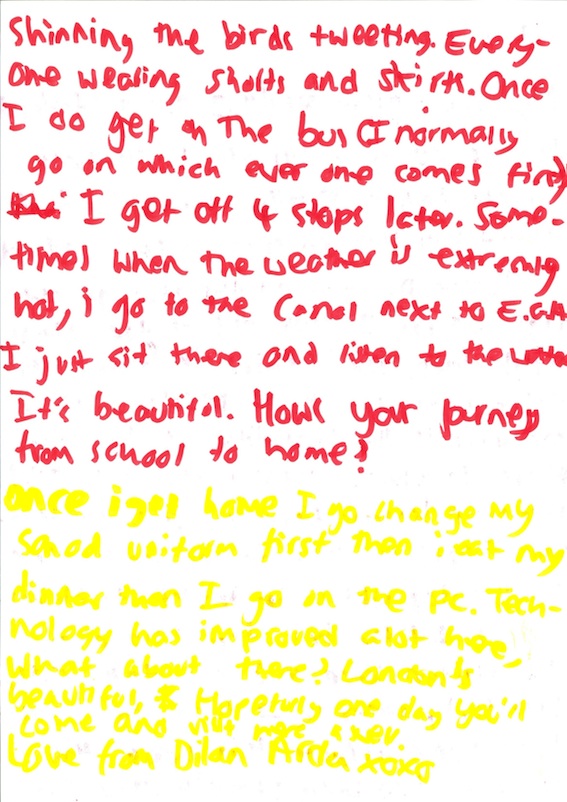 Shinning the birds tweeting. Every-
one wearing shorts and skirts. Once
I do get on The bus (I normally
go on which ever one comes first)
I get off 4 stops later. Some-
times when the weather is extremly
hot, i go to the Canal next to E.G.A
I just sit there and listen to the water
It's beautiful. Hows your journey
from school to home?
once i get home I go change my
school uniform first then i eat my
dinner then I go on the PC. Tech-
nology has improved alot here,
What about there? London's
beautiful, Hopefully one day you'll
come and visit
Love from Dilan Arda xoxo